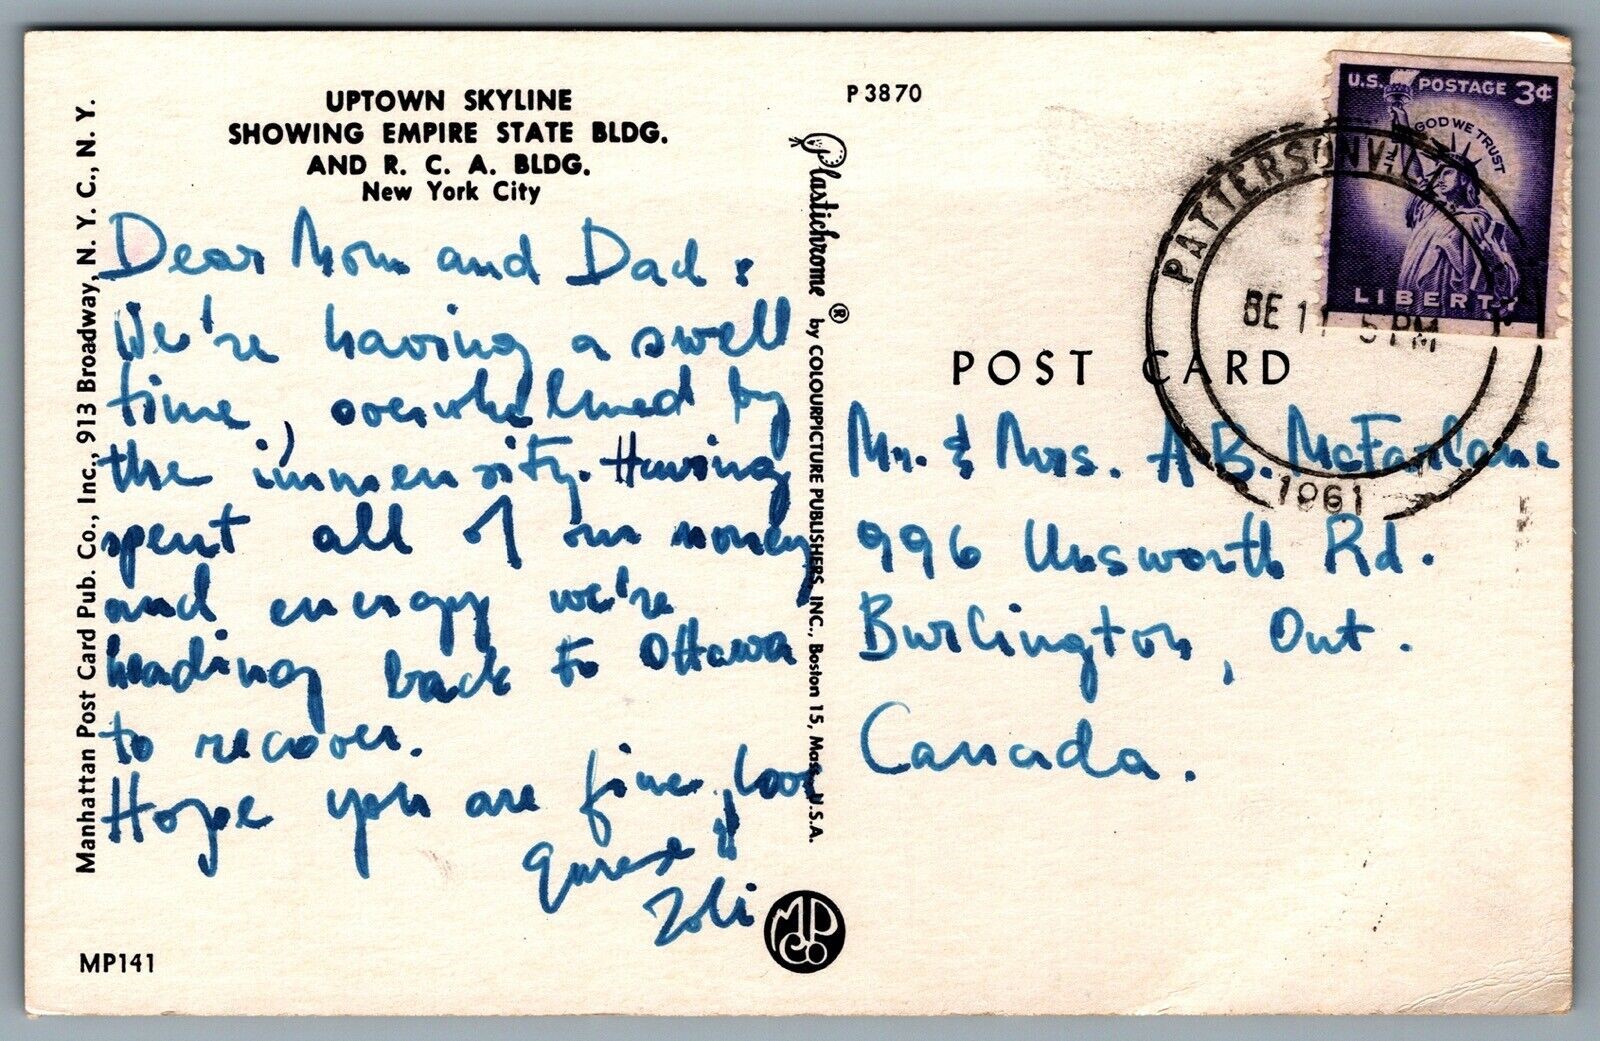 UPTOWN SKYLINE
SHOWING EMPIRE STATE BLDG.
AND R. C. A. BLDG.
New York City
Dear Mom and Dad:
We're having a swell
time, overwhelmed by
the immensity. Having
spent all of our money
and energy we're
heading back to Ottawa
to recover.
Hope you are fine, love
&
Zoli
MP141
Manhattan Post Card Pub. Co., Inc., 913 Broadway, N. Y. C., N. Y.
Plastichrome ® by COLOURPICTURE PUBLISHERS, INC., Boston 15, Mass., U.S.A.
MP Co
P3870
POST CARD
U.S. POSTAGE 3¢
IN GOD WE TRUST
LIBERTY
PATTERSONVILLE
11 5 PM
1961
Mr. & Mrs. A B. McFarlane
996 Unsworth Rd.
Burlington, Ont.
Canada.